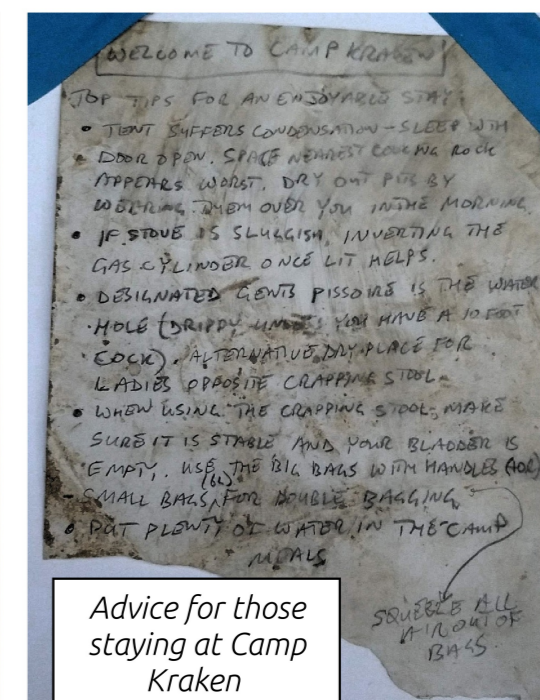 WELCOME TO CAMP KRAKEN!
TOP TIPS FOR AN ENJOYABLE STAY:
• TENT SUFFERS CONDENSATION - SLEEP WITH
• DOOR OPEN. SPACE NEAREST COOKING ROCK
APPEARS WORST. DRY OUT PITS BY
WEARING THEM OVER YOU IN THE MORNING.
• IF STOVE IS SLUGGISH, INVERTING THE
GAS CYLINDER ONCE LIT HELPS.
• DESIGNATED GENTS PISSOIRE IS THE WATER
HOLE (DRIPPY UNLESS YOU HAVE A 10 FOOT
COCK). ALTERNATIVE DRY PLACE FOR
LADIES OPPOSITE CRAPPING STOOL.
• WHEN USING THE CRAPPING STOOL, MAKE
SURE IT IS STABLE AND YOUR BLADDER IS
EMPTY. USE THE BIG BAGS WITH HANDLES
- SMALL BAGS FOR DOUBLE BAGGING
• PUT PLENTY OF WATER IN THE CAMP
MEALS
SQUEEZE ALL
AIR OUT OF
BAGS.
Advice for those
staying at Camp
Kraken